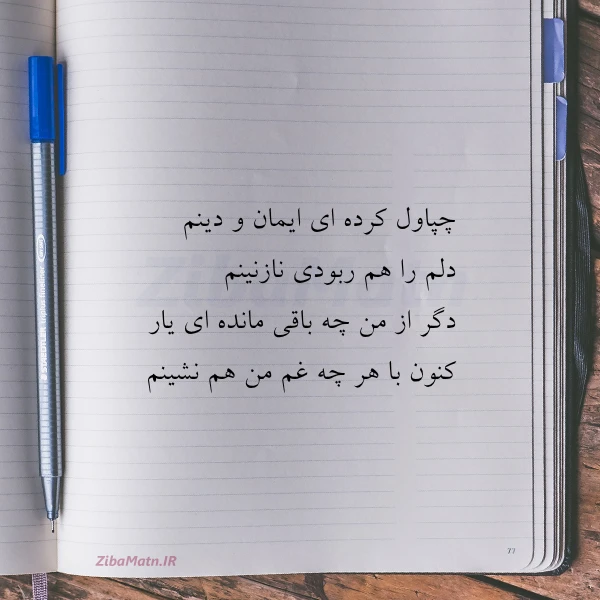 چپاول کرده ای ایمان و دینم
دلم را هم ربودی نازنینم
دگر از من چه باقی مانده ای یار
کنون با هر چه غم من هم نشینم
ZibaMatn
77
ZibaMatn.IR